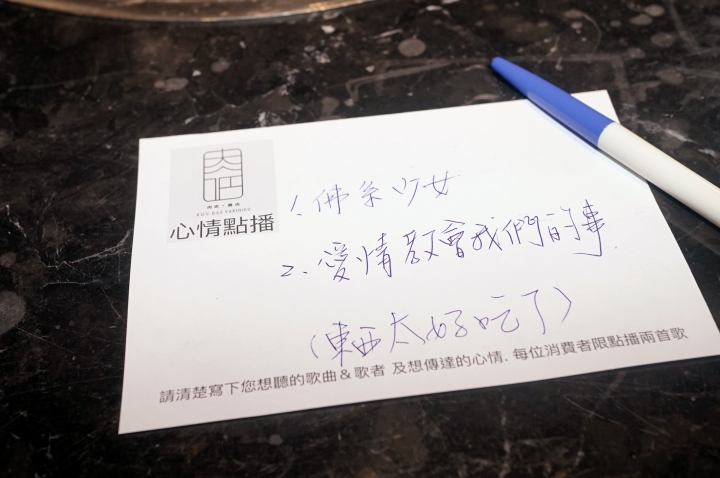 心情點播
1. 佛系少女
2. 愛情教會我們的事
(東西太好吃了)
請清楚寫下您想聽的歌曲&歌者 及想傳達的心情. 每位消費者限點播兩首歌